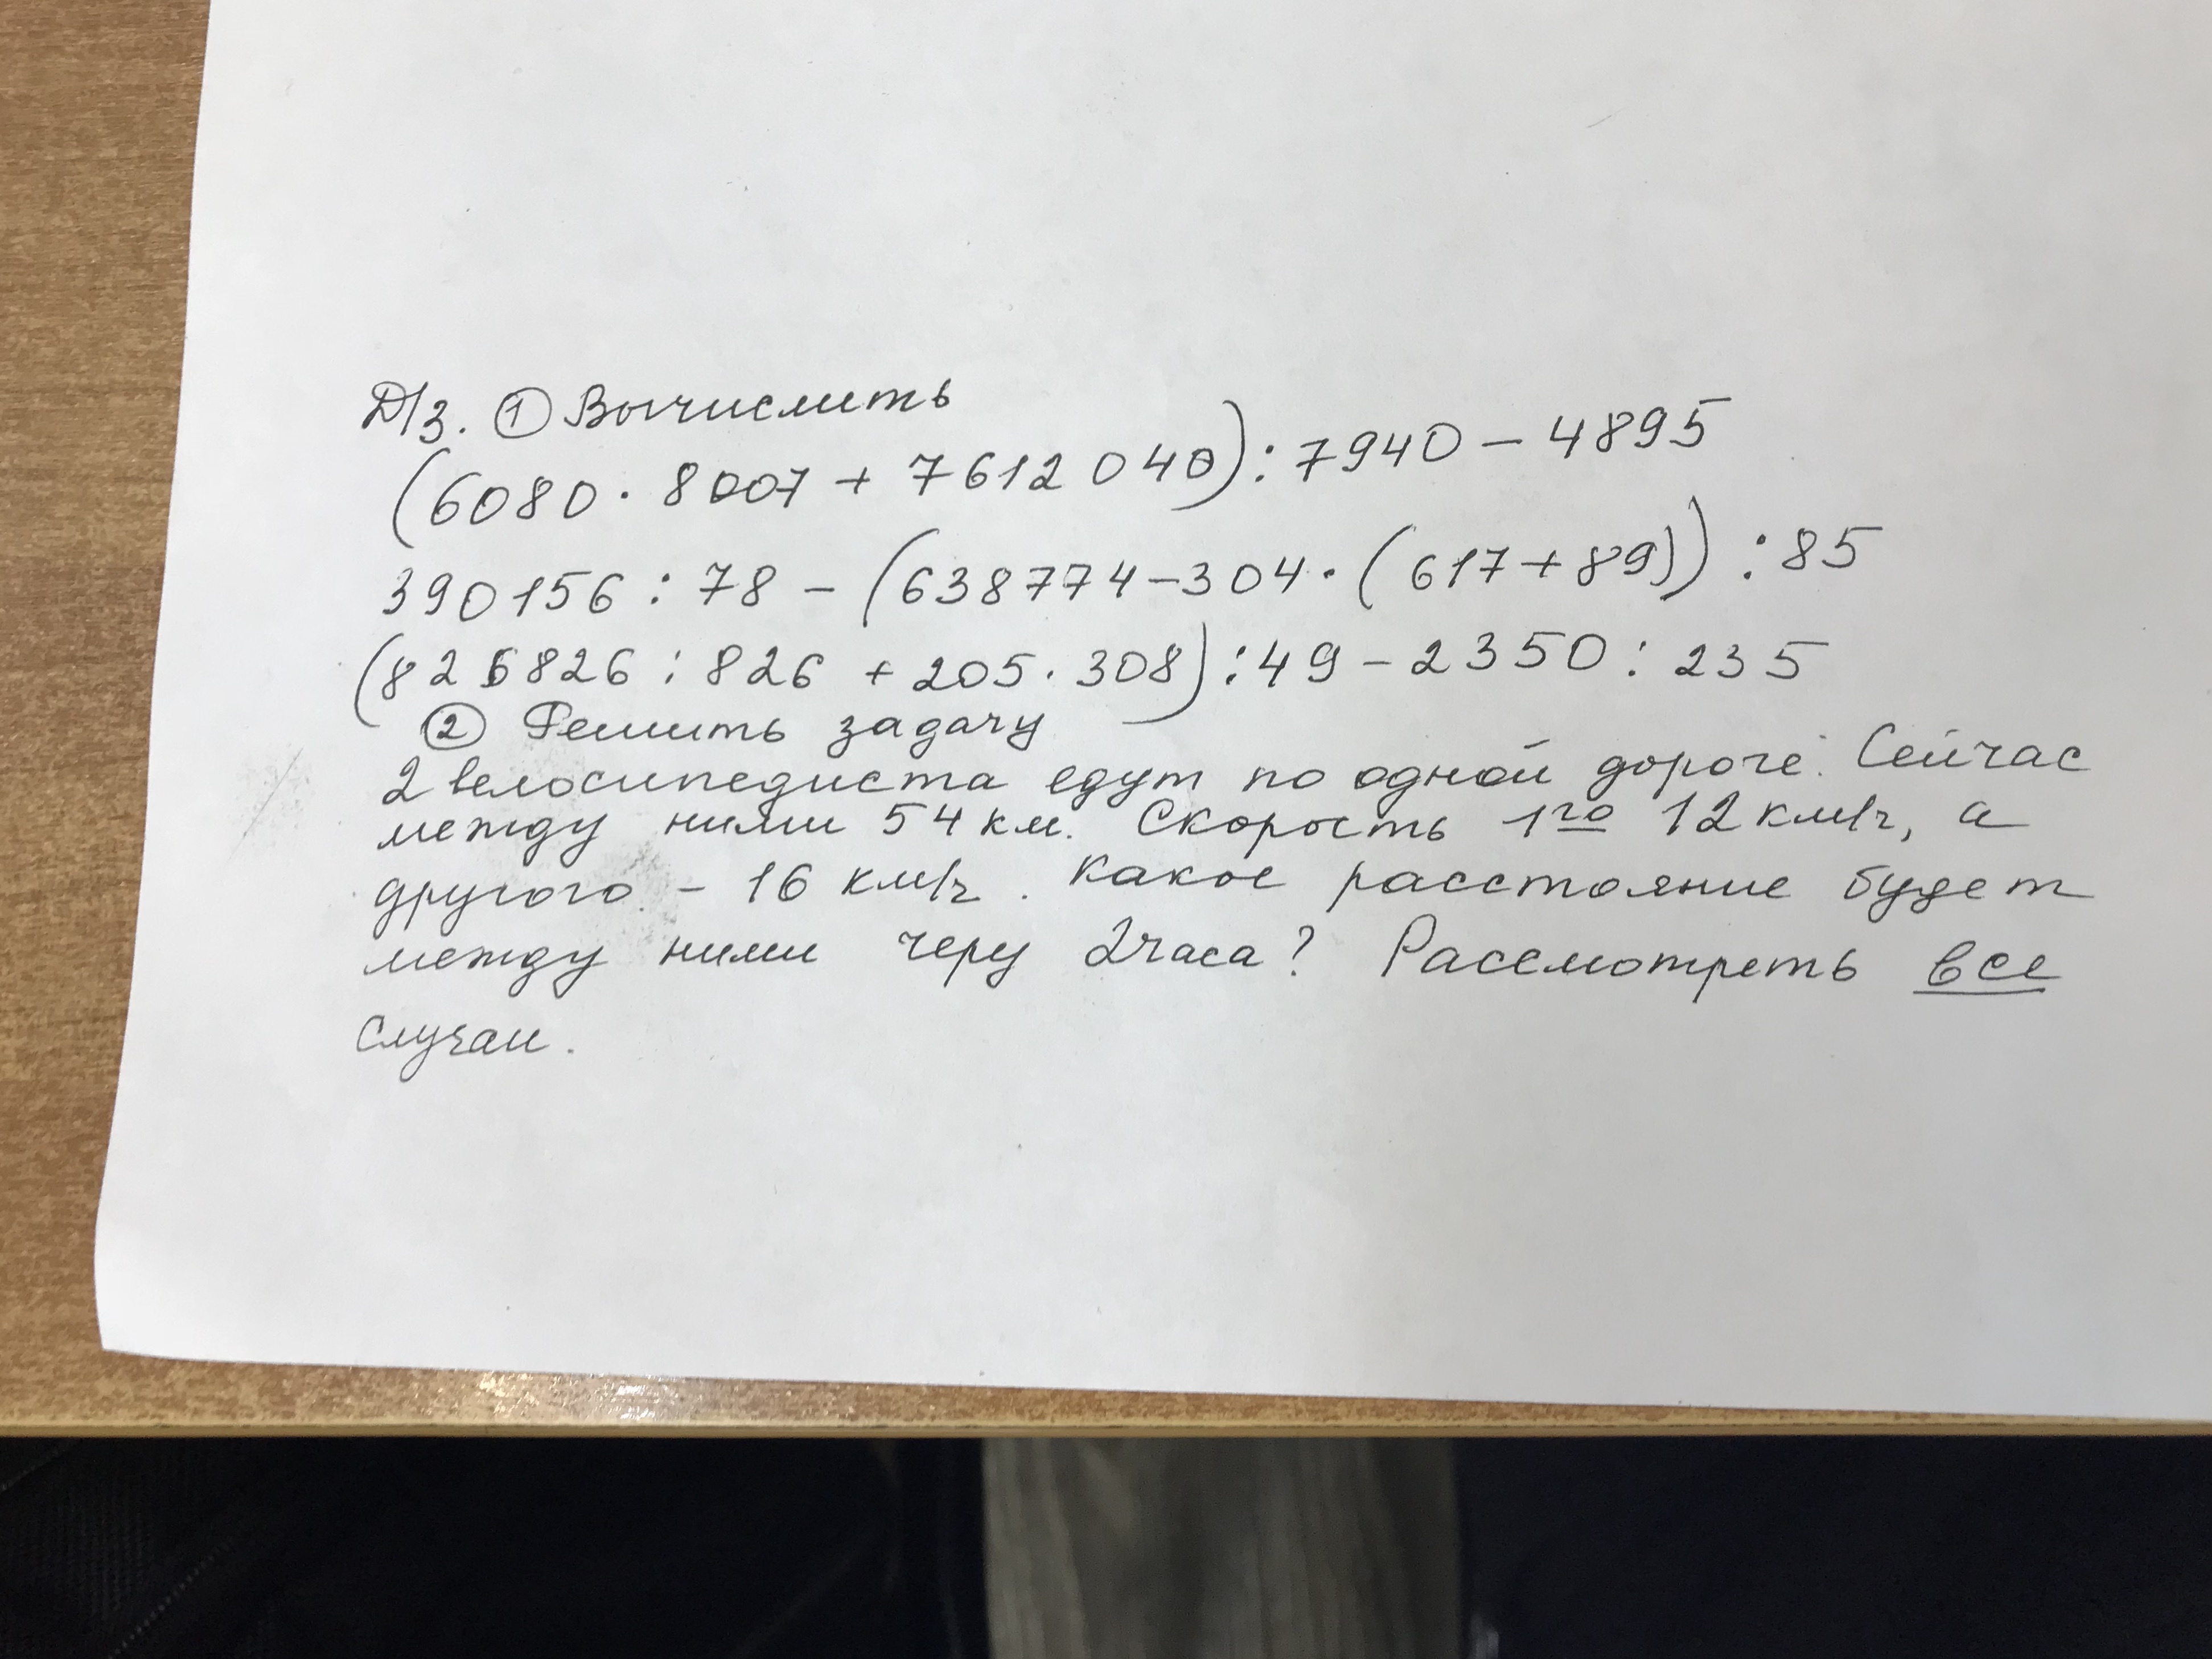 Д/З. ① Вычислить
(6080 · 8007 + 7612040) : 7940 – 4895
390156 : 78 – (638774 – 304 · (617 + 89)) : 85
(826826 : 826 + 205 · 308) : 49 – 2350 : 235
② Решить задачу
2 велосипедиста едут по одной дороге. Сейчас
между ними 54 км. Скорость 1го 12 км/ч, а
другого – 16 км/ч. Какое расстояние будет
между ними через 2 часа? Рассмотреть все
случаи.